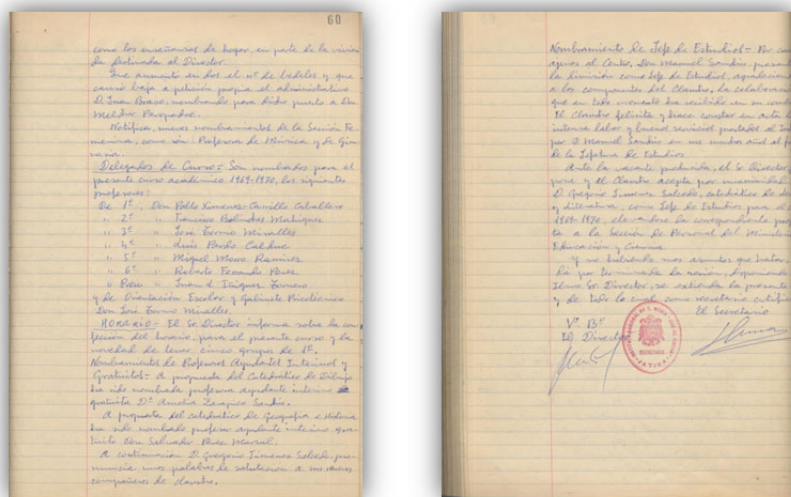 60
como las enseñanzas de hogar, en parte de la vivien
da destinada al Director.
Que aumento en dos el nº de bedeles y que
causó baja a petición propia el administrativo
D. Juan Bravo, nombrando para dicho puesto a Don
Melchor
Notifica, nuevos nombramientos de la Sección Fe
menina, como son: Profesora de Música y de Gim
nasia.
Delegados de Curso = Son nombrados para el
presente curso académico 1969-1970, los siguientes
profesores:
De 1º, Don Pablo Ximenez-Carrillo Caballero
" 2º " Francisco Matiques
" 3º " José Miralles
" 4º " Luis Pardo Calduc
" 5º " Miguel Moro Ramirez
" 6º " Roberto Ferrando Perez
" Preu " Juan J. Iñiguez
y de Orientación Escolar y Gabinete Psicotécnico
Don José Miralles.
HORARIO = El Sr. Director informa sobre la con
fección del horario, para el presente curso y la
novedad de tener cinco grupos de 1º.
Nombramientos de Profesores Ayudantes Interinos y
Gratuitos = A propuesta del Catedrático de Dibujo
ha sido nombrada profesora ayudante interino
gratuita Dª Amelia Zaragozá Sandis.
A propuesta del catedrático de Geografía e Historia
ha sido nombrado profesor ayudante interino gra
tuito Don Salvador Perez
A continuación D. Gregorio Jimenez Salcedo, pro
nuncia unas palabras de salutación a sus nuevos
compañeros de claustro.
Nombramiento de Jefe de Estudios = Por
ajenas al Centro, Don Manuel Sandis,
la dimisión como Jefe de Estudios,
a los componentes del Claustro, la
que en todo momento ha recibido en su
El Claustro felicita y hace constar en acta la
intensa labor y buenos servicios prestados al
por D. Manuel Sandis en sus muchos años al
de la Jefatura de Estudios
Ante la vacante producida, el Sr. Director
pone y el Claustro acepta por
D. Gregorio Jimenez Salcedo, catedrático de
y Literatura, como Jefe de Estudios para el
1969-1970, elevandose la correspondiente
ta a la Sección de Personal del
Educación y Ciencia
Y no habiendo mas asuntos que tratar,
da por terminada la sesión, disponiendo
Ilmo Sr. Director, se extienda la presente
y de todo lo cual, como secretario
El Secretario
Vº Bº
El Director